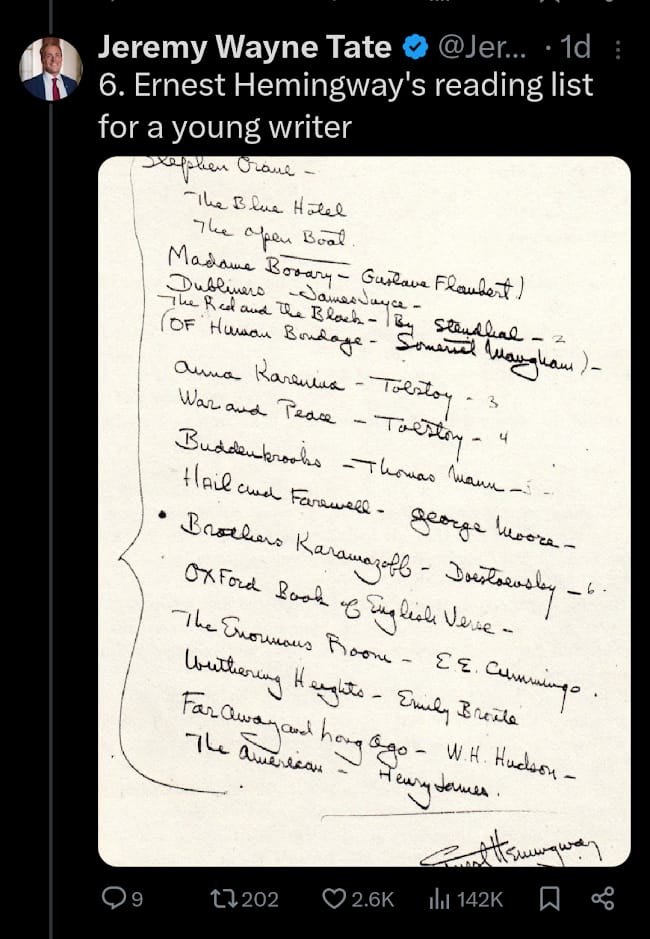 Jeremy Wayne Tate @Jer... · 1d
6. Ernest Hemingway's reading list
for a young writer
Stephen Crane -
The Blue Hotel
The Open Boat.
Madame Bovary - Gustave Flaubert)
Dubliners - James Joyce -
The Red and The Black - By Stendhal - 2
(OF Human Bondage - Somerset Maugham) -
Anna Karenina - Tolstoy - 3
War and Peace - Tolstoy - 4
Buddenbrooks - Thomas Mann - 5 -
Hail and Farewell - George Moore -
• Brothers Karamazoff - Doestoevsky - 6.
OXFord Book of English Verse -
The Enormous Room - E.E. Cummings.
Wuthering Heights - Emily Bronte
Far Away and Long Ago - W.H. Hudson -
The American - Henry James.
Ernest Hemingway
9 202 2.6K 142K